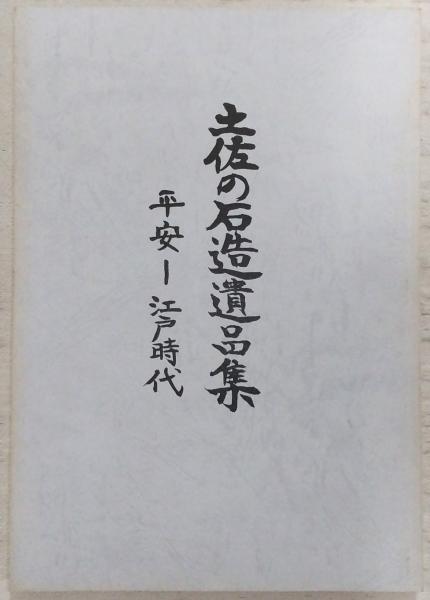 土佐の石造遺品集
平安ー江戸時代